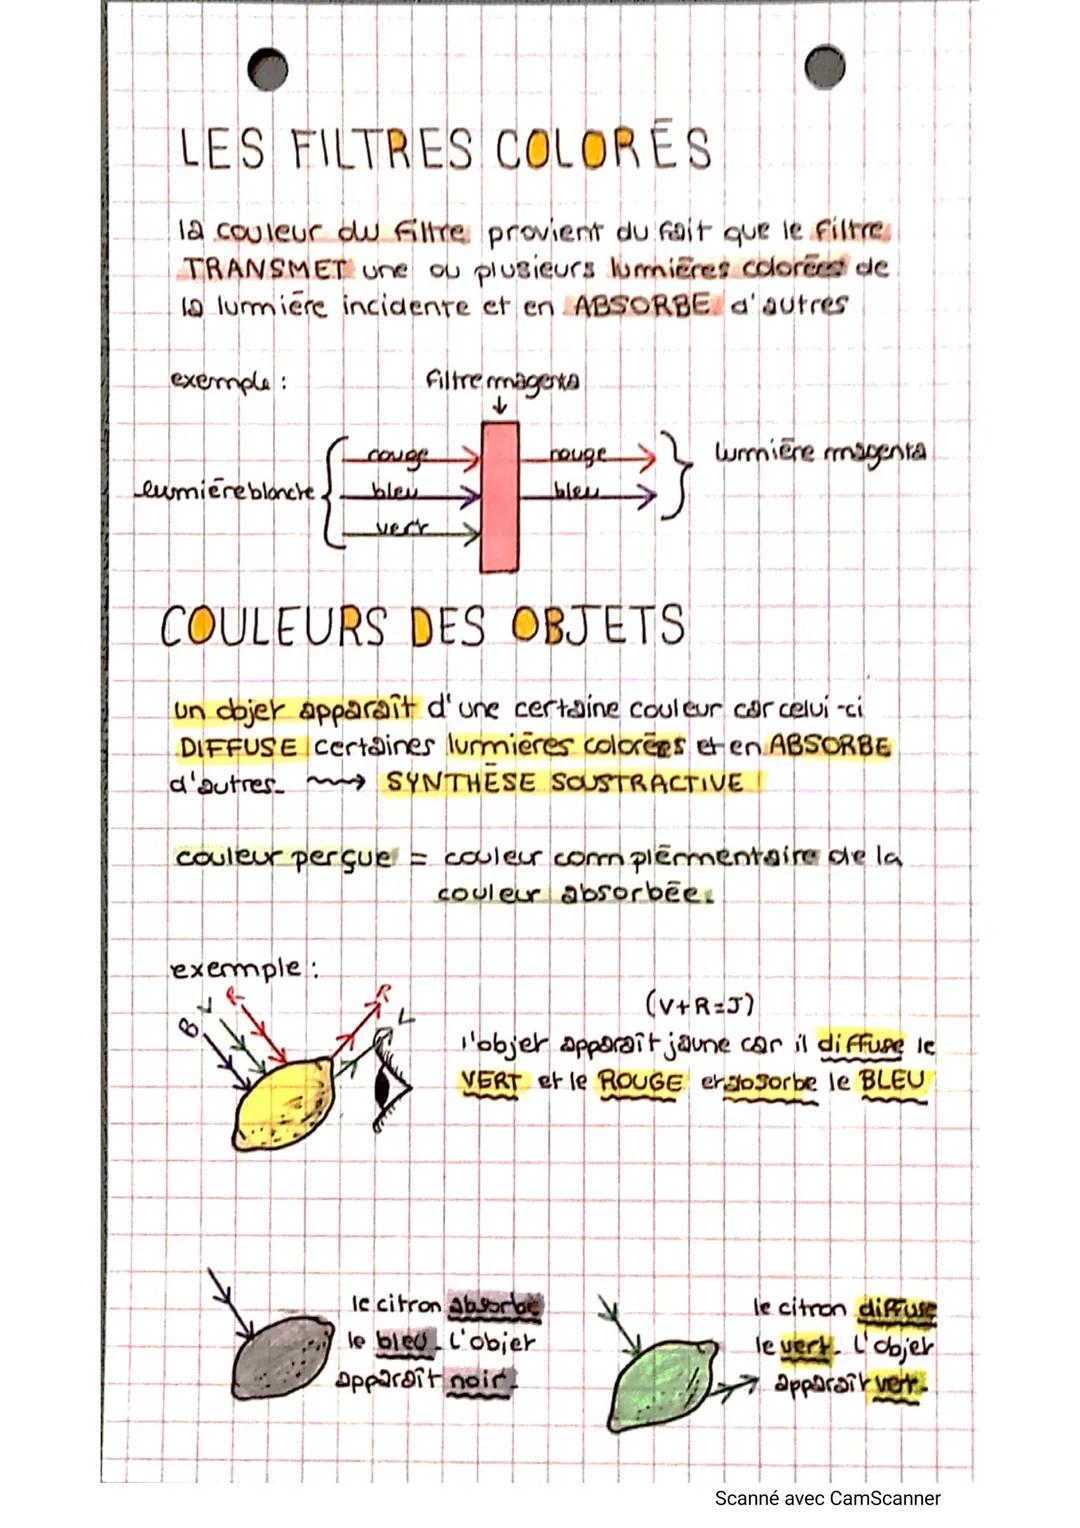 LES FILTRES COLORÉS
la couleur du filtre provient du fait que le filtre
TRANSMET une ou plusieurs lumières colorées de
la lumière incidente et en ABSORBE d'autres
exemple :
filtre magenta
rouge
rouge
lumière magenta
lumière blanche
bleu
bleu
vert
COULEURS DES OBJETS
un objet apparaît d'une certaine couleur car celui-ci
DIFFUSE certaines lumières colorées et en ABSORBE
d'autres. SYNTHÈSE SOUSTRACTIVE
couleur perçue = couleur complémentaire de la
couleur absorbée.
exemple :
B V R
R
V
(V+R=J)
l'objet apparaît jaune car il diffuse le
VERT et le ROUGE et absorbe le BLEU
le citron absorbe
le bleu. L'objet
apparaît noir.
le citron diffuse
le vert. L'objet
apparaît vert.
Scanné avec CamScanner